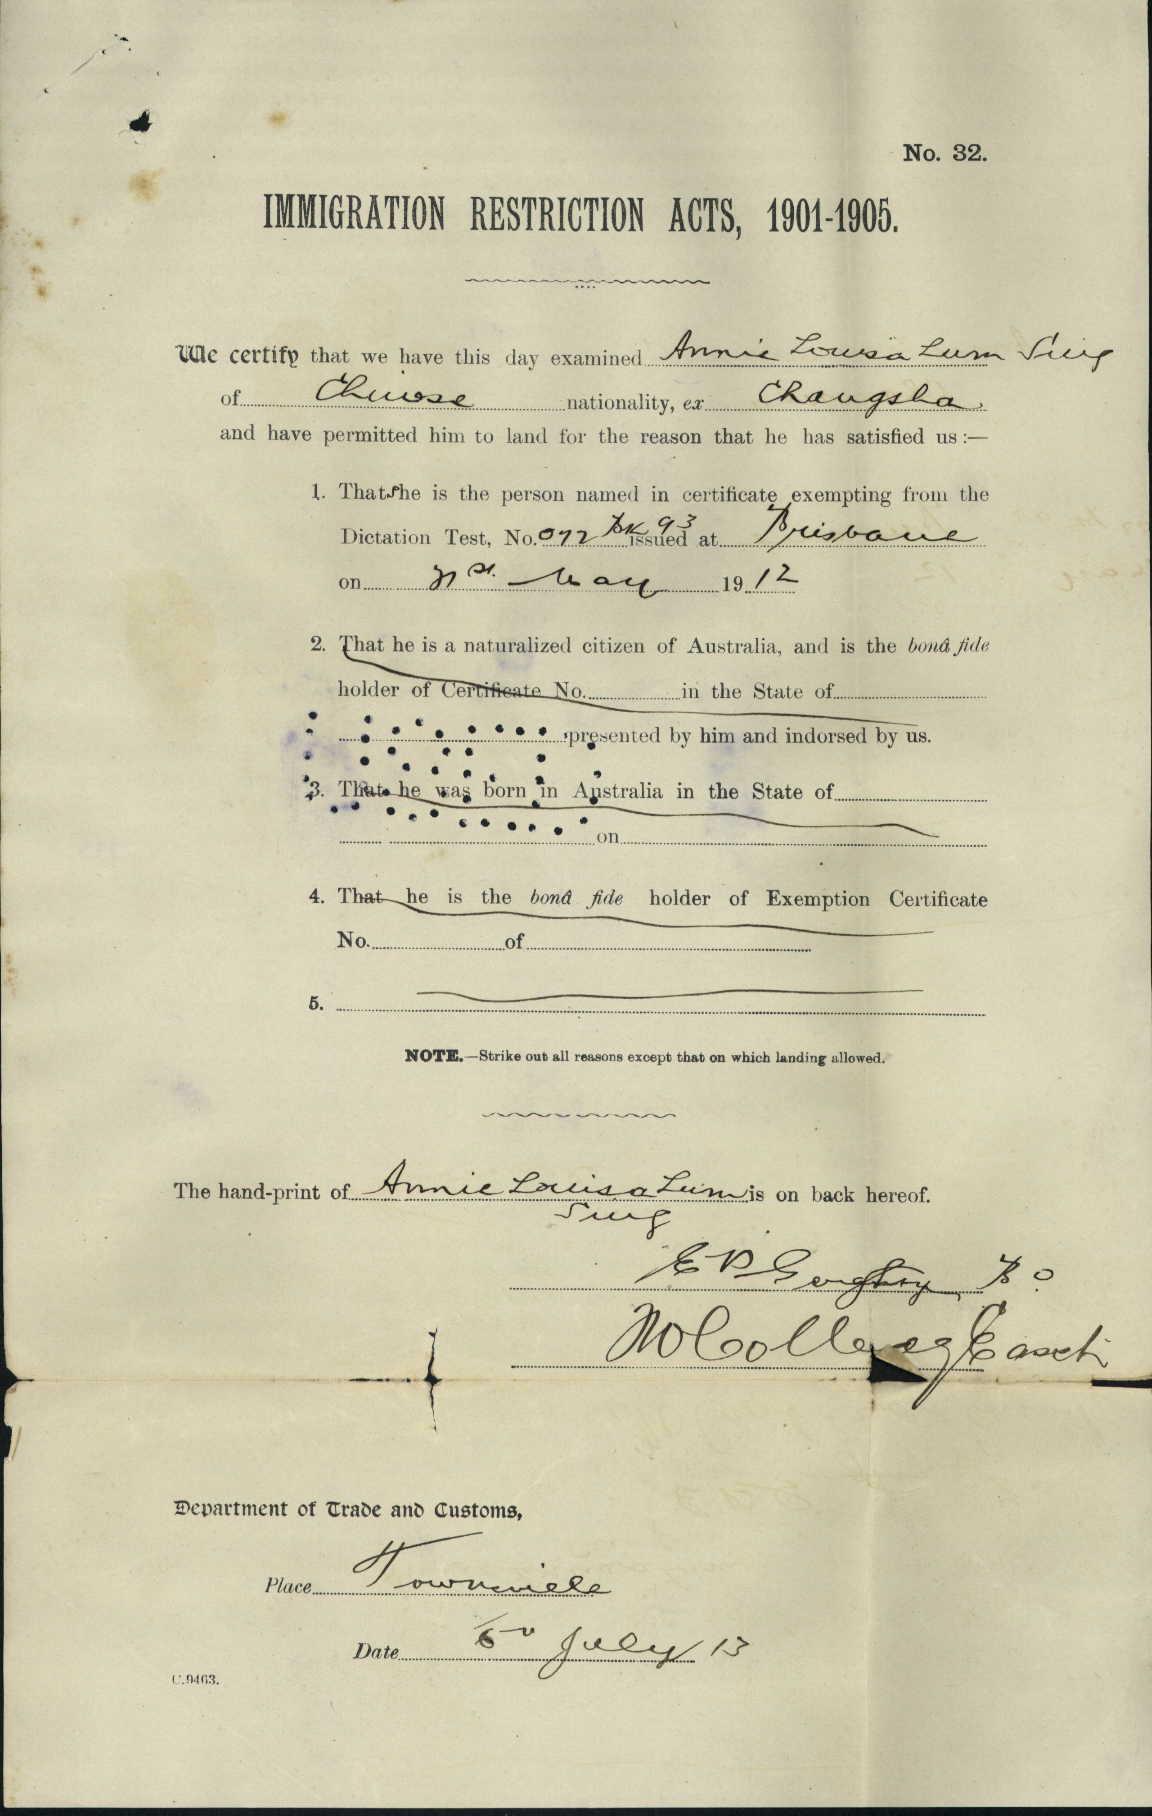 No. 32.
IMMIGRATION RESTRICTION ACTS, 1901-1905.
We certify that we have this day examined Annie Louisa Lum Sing
of Chinese nationality, ex Changsha.
and have permitted him to land for the reason that he has satisfied us :—
1. That she is the person named in certificate exempting from the
Dictation Test, No. 072 Bk 93 issued at Brisbane
on May 1912
2. That he is a naturalized citizen of Australia, and is the bonâ fide
holder of Certificate No. in the State of
presented by him and indorsed by us.
3. That he was born in Australia in the State of
on
4. That he is the bonâ fide holder of Exemption Certificate
No. of
5.
NOTE.—Strike out all reasons except that on which landing allowed.
The hand-print of Annie Louisa Lum is on back hereof.
Sing
Department of Trade and Customs,
Place Townsville
Date July 13
C.9463.